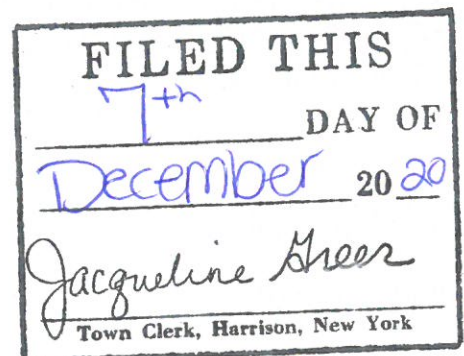 FILED THIS
7th DAY OF
December 20 20
Jacqueline Greer
Town Clerk, Harrison, New York